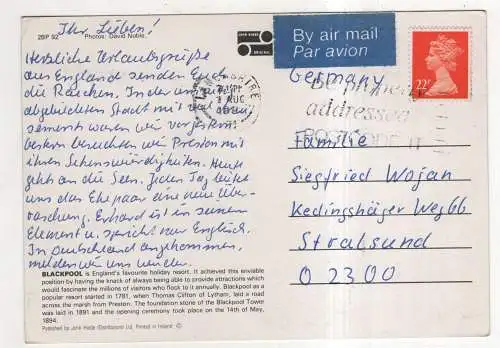 Ihr Lieben!
2BP 92 Photos: David Noble.
JOHN HINDE ORIGINAL
By air mail
Par avion
22ᴾ
Herzliche Urlaubsgrüße
aus England senden Euch
die Raschen. In der umseitig
abgebildeten Stadt mit
waren wir vorgestern.
Gestern besuchten wir Preston mit
ihren Sehenswürdigkeiten. Heute
geht's an die Seen. Jeden Tag bietet
uns das Ehepaar eine neue Über-
raschung. Erhard ist in seinem
Element u. spricht nur Englisch.
In Deutschland angekommen,
melden wir uns wieder.
BLACKPOOL is England's favourite holiday resort. It achieved this enviable
position by having the knack of always being able to provide attractions which
would fascinate the millions of visitors who flock to it annually. Blackpool as a
popular resort started in 1781, when Thomas Clifton of Lytham, laid a road
across the marsh from Preston. The foundation stone of the Blackpool Tower
was laid in 1891 and the opening ceremony took place on the 14th of May,
1894.
Published by John Hinde (Distributors) Ltd. Printed in Ireland ©
AUG
Be properly
addressed
POSTCODE IT
Germany
Familie
Siegfried Wojan
Kedingshäger Weg 66
Stralsund
O 2300